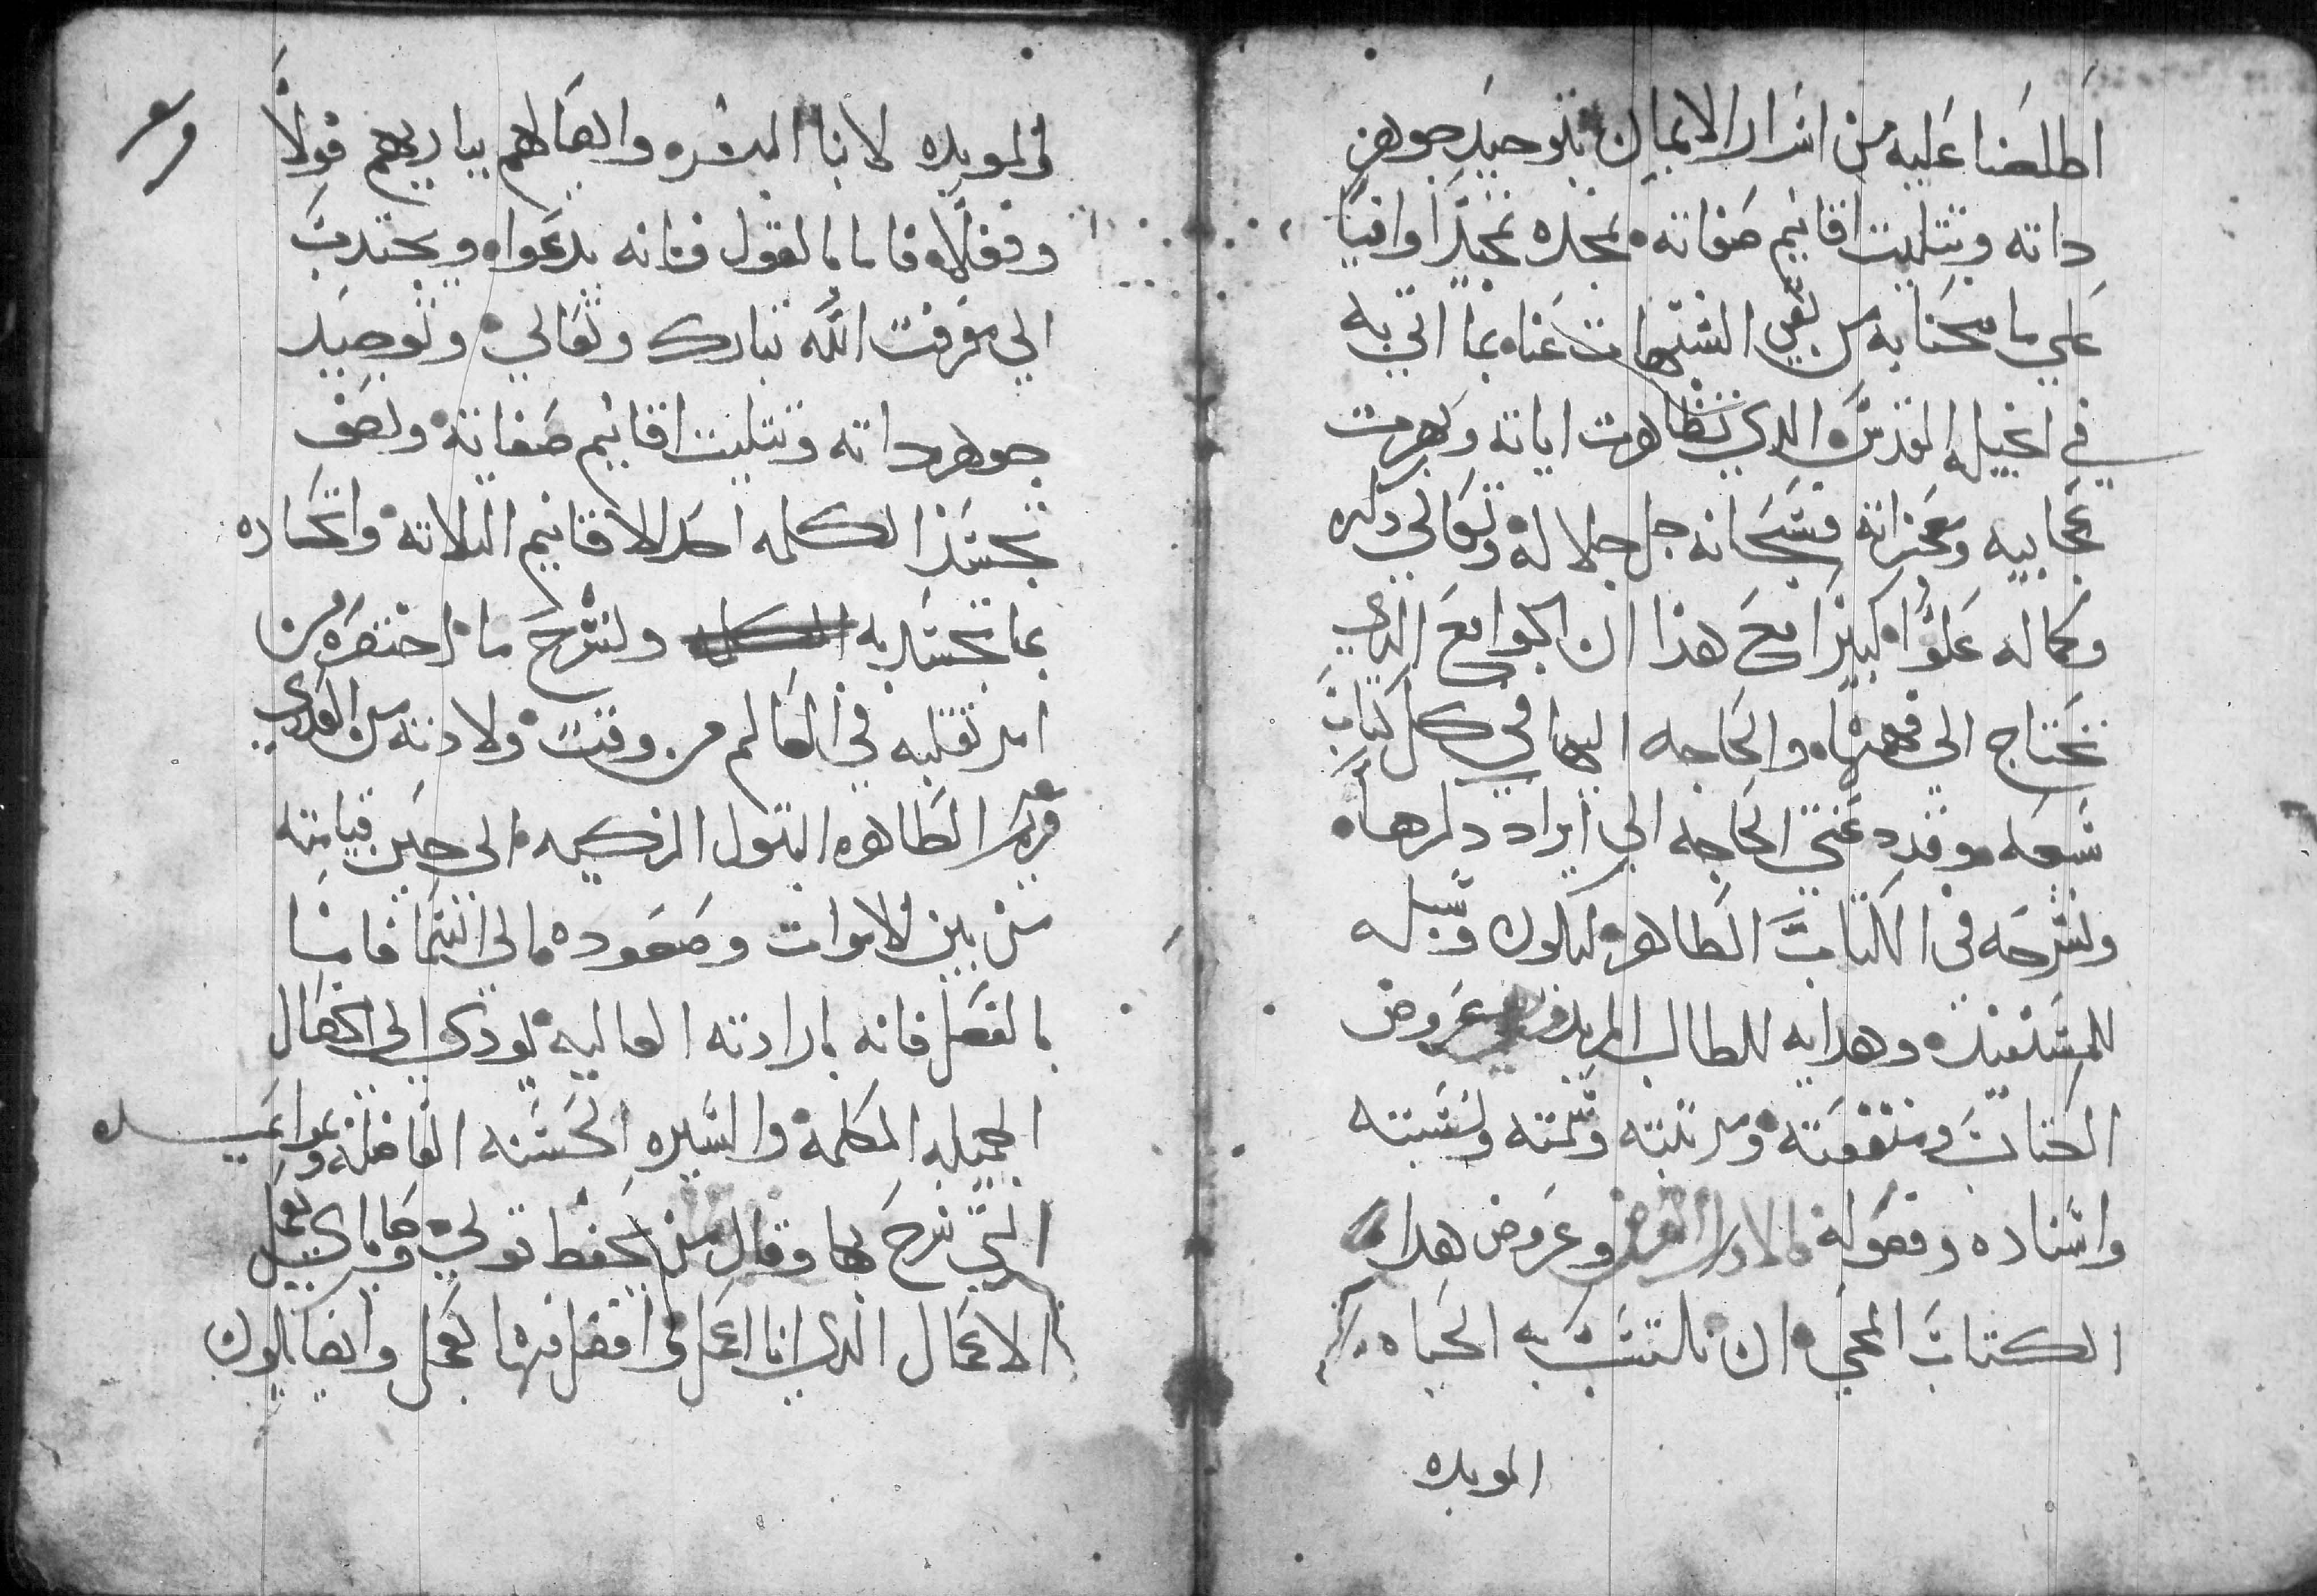 اطلعنا عليه من اسرار الايمان بتوحيد جوهر
داته وتتليت اقانيم صفاته نمجده تمجيدا وافيا
علي ما منحنا به من نفي الشبهات عنا بما اتي به
في انجيله المقدس الدي تظاهرت اياته وبهرت
عجايبه ومعجزاته فسبحانه جل جلاله وتعالي دكره
وكماله علوا كبيرا مع هدا ان الجوامع الدي
نحتاج الي فهمها والحاجه اليها في كل كتاب
سبعه وقد دعتني الحاجه الي ايراد دكرها
ونشرحه في الكتاب الطاهر ليكون وسيله
للمستفيد وهدايه للطالب المريد غروض
الكتاب ومنفعته ومرتبته وسمته ونسبته
واسناده وفصوله الاول الغرض وغروض هدا
الكتاب المحيي ان نلتبس به الحياه
الموبده
الموبده لابنا البشره وايصالهم بباريهم قولا
وفعلا فاما بالقول فانه يدعوا ويجتدب
الي معرفت الله تبارك وتعالي وتوحيد
جوهر داته وتتليت اقانيم صفاته ونصف
تجسد الكلمه احد الاقانيم التلاته واتحاده
بما تجسد به ونشرح ما اختصره من
امر تقلبه في العالم من وقت ولادته من العدري
مريم الطاهره البتول الزكيه الي حين قيامته
من بين الاموات وصعوده الي السما فاما
بالفعل فانه بارادته العاليه يودي الي الافعال
الجميله المكلمه والسيره الحسنه الفاضله ومواعيده
التي نرح بها وقال من يحفظ قولي وصاياي يعمل
الاعمال الدي انا اعمل وافضل منها يعمل وايضا يكون